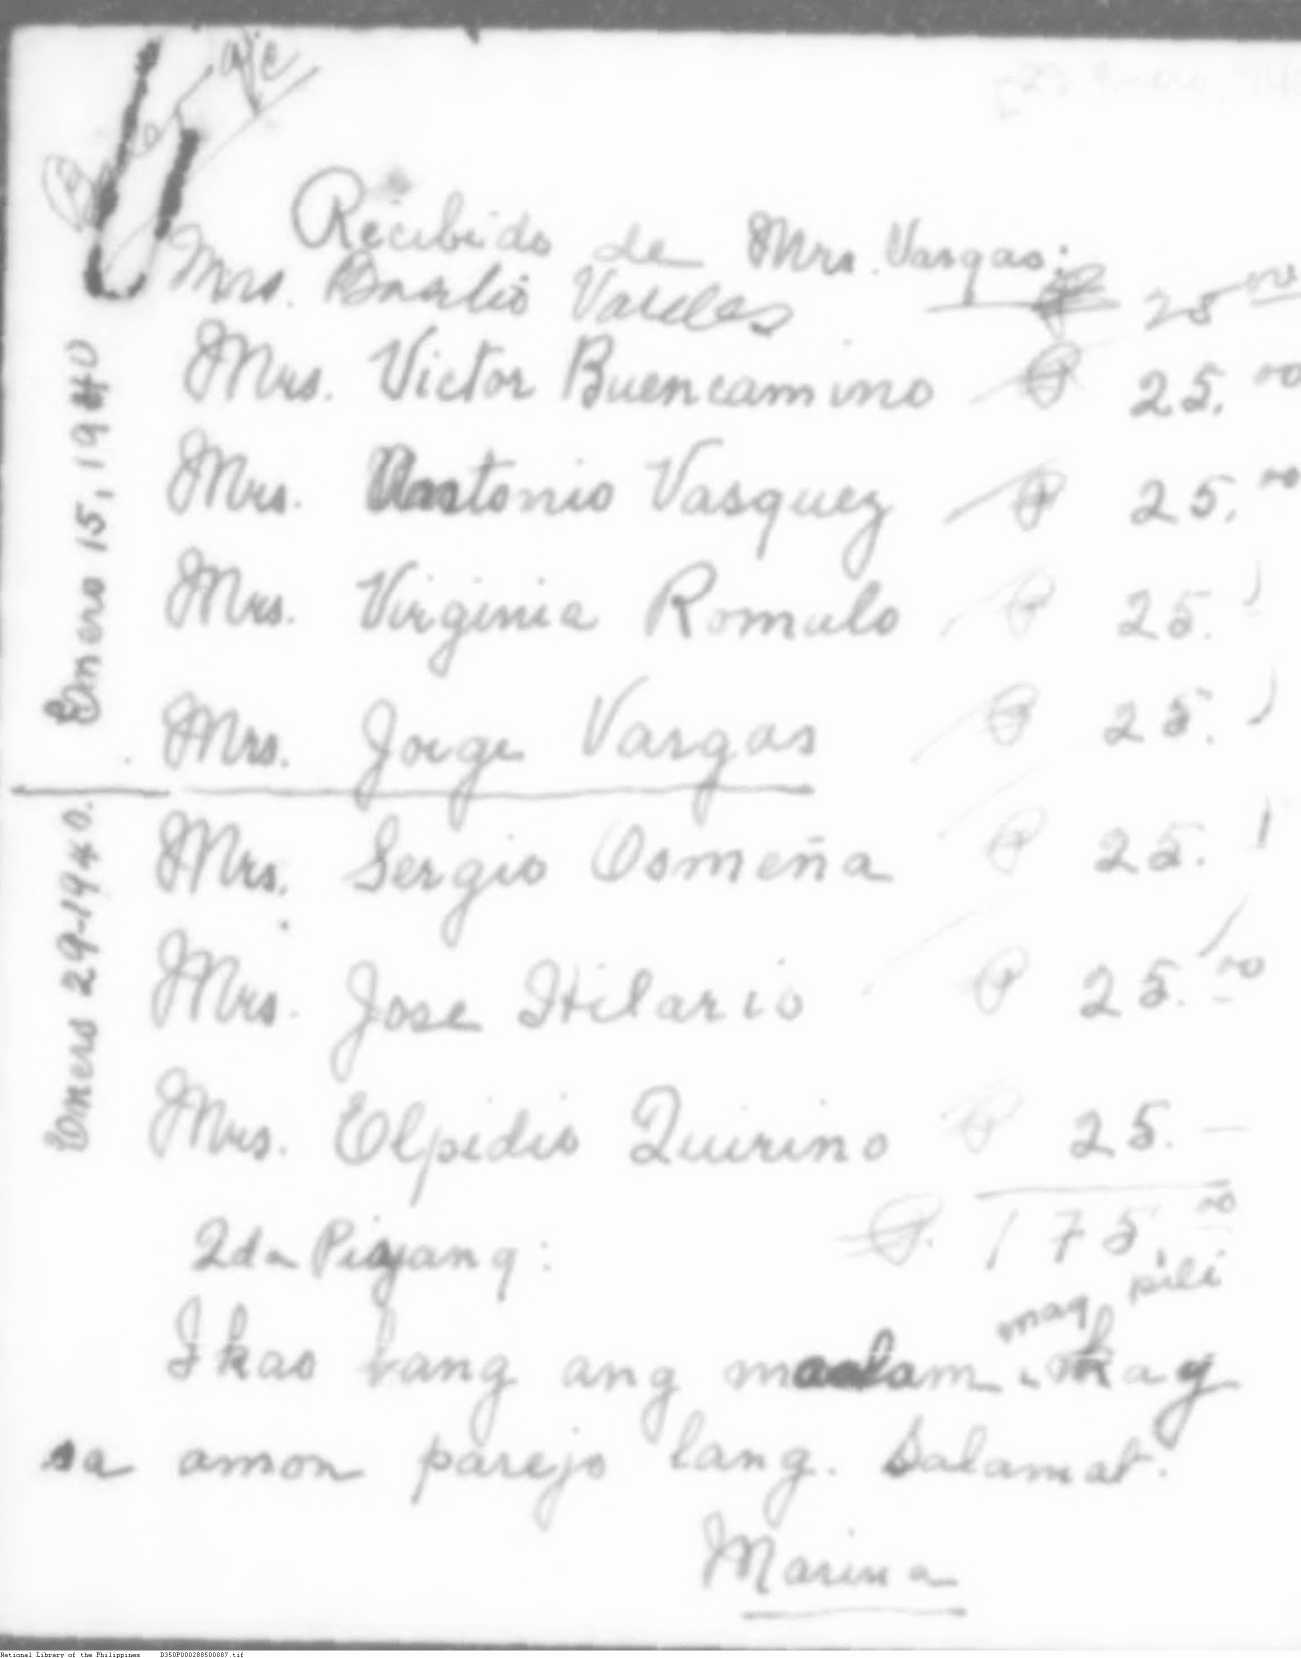 Recibido de Mrs. Vargas:
Mrs. Basilio Valdes ₱ 25.00
Mrs. Victor Buencamino ₱ 25.00
Mrs. Antonio Vasquez ₱ 25.00
Mrs. Virginia Romulo ₱ 25.
Mrs. Jorge Vargas ₱ 25.
Enero 15, 1940
Mrs. Sergio Osmeña ₱ 25.
Mrs. Jose Hilario ₱ 25.00
Mrs. Elpidio Quirino ₱ 25. —
Enero 29-1940.
₱. 175.00
2da Pigang:
mag pili
Ikao bang ang maalam, kay
sa amon parejo lang. Salamat.
Marina
National Library of the Philippines D350P000288500087.tif